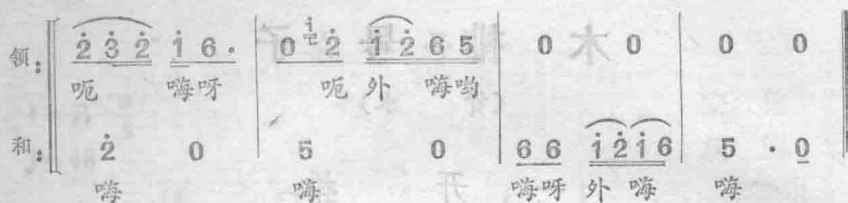 领: 2̇ 3̇ 2̇ i̇ 6 · | 0 i̇ 2̇ i̇ 2̇ 6 5 | 0 0 | 0 0
呃 嗨呀 呃 外 嗨哟
和: 2̇ 0 | 5 0 | 6 6 i̇ 2̇ i̇ 6 | 5 · 0
嗨 嗨 嗨呀 外 嗨 嗨